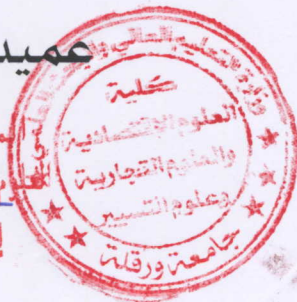 عميد
وزارة التعليم العالي والبحث العلمي
كلية
العلوم الإقتصادية
والعلوم التجارية
وعلوم التسيير
جامعة ورقلة